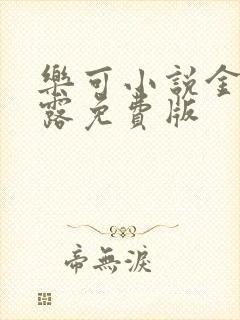 樂可小說金
露免費版
帝無淚